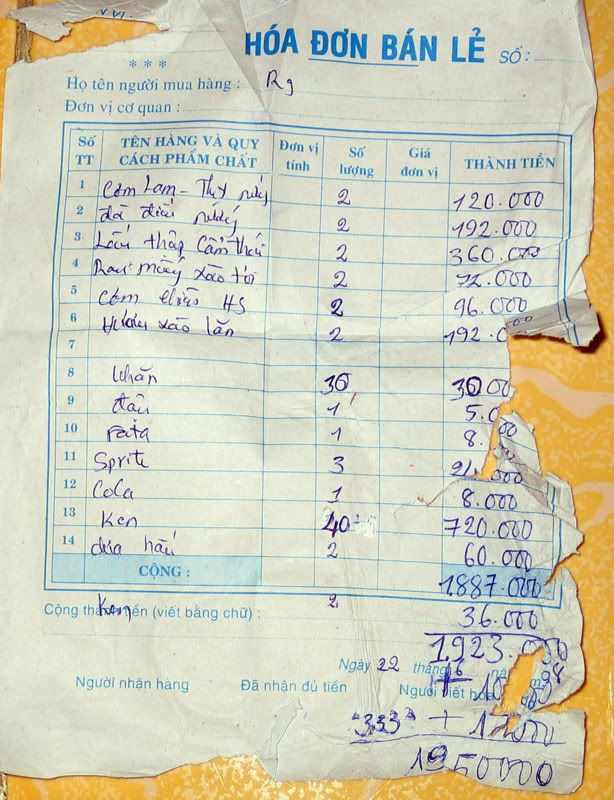 HÓA ĐƠN BÁN LẺ SỐ:
***
Họ tên người mua hàng : Rg
Đơn vị cơ quan :
Số TT TÊN HÀNG VÀ QUY CÁCH PHẨM CHẤT Đơn vị tính Số lượng Giá đơn vị THÀNH TIỀN
1 Cơm Lam - Thịt nướng 2 120.000
2 đà điểu nướng 2 192.000
3 Lẩu thập Cẩm 2 360.000
4 Rau xào tỏi 2 72.000
5 Cơm chiên HS 2 96.000
6 Hươu xào lăn 2 192.000
7
8 khăn 30 30 00
9 đậu 1 5.0
10 1 8. 00
11 Sprite 3 .000
12 Cola 1 8.000
13 Ken 40 720.000
14 dưa hấu 2 60.000
CỘNG : 1887.000
Ken 2 36.000
Cộng thành tiền (viết bằng chữ) :
1923.000
Ngày 22 tháng 6 08
Người nhận hàng Đã nhận đủ tiền Người viết hóa
333 + 17000
1950000